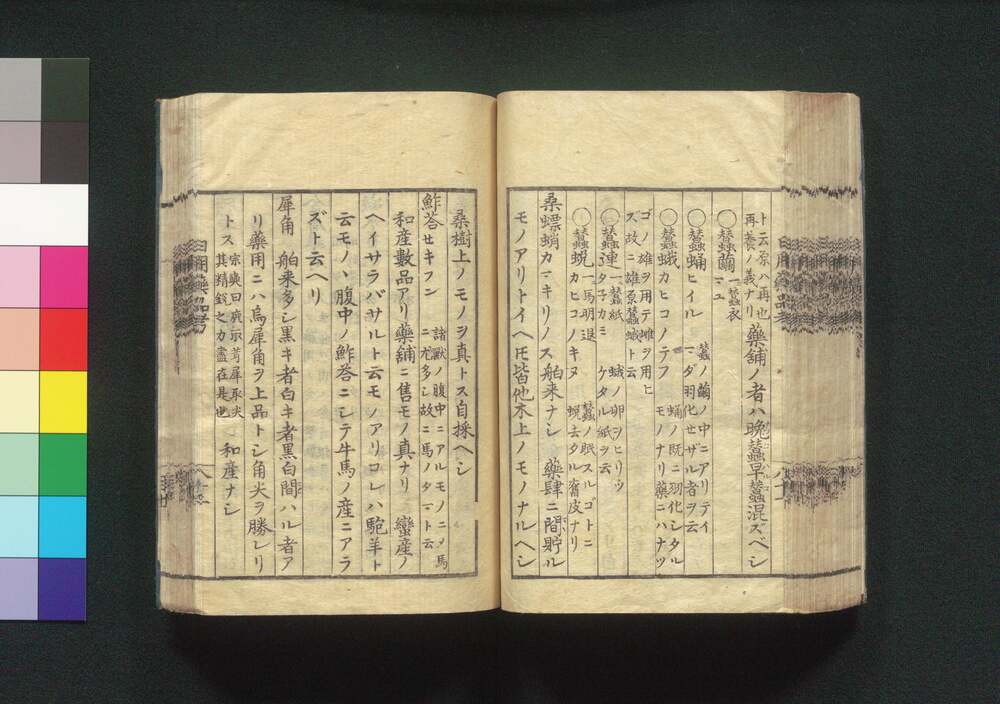 ト云原ハ再也
再養ノ義ナリ
藥舗ノ者ハ晩蠶早蠶混ズベシ
○蠶繭 一蠶衣
マユ
○蠶蛹 ヒイル 蠶ノ繭ノ中ニアリテイ
マダ羽化セザル者ヲ云
○蠶蛾 カヒコノテフ 蛹ノ既ニ羽化シタル
モノナリ藥ニハナツ
ゴノ雄ヲ用テ雌ヲ用ヒ
ズ故ニ雄原蠶蛾ト云
○蠶連 一蠶紙 蛾ノ卵ヲヒリツ
タ子カミ ケタル紙ヲ云
○蠶蛻 一馬明退 蠶ノ眠スルゴトニ
カヒコノキヌ 蛻去タル舊皮ナリ
桑螵蛸 カマキリノス 舶来ナシ 藥肆ニ間貯ル
モノアリトイヘ𪜈皆他木上ノモノナルヘシ
桑樹上ノモノヲ真トス自採ヘシ
鮓荅 セキフン 諸獣ノ腹中ニアルモノニ〆馬
ニ尤多シ故ニ馬ノタマト云
和産數品アリ藥舗ニ售モノ真ナリ 蠻産ノ
ヘイサラバサルト云モノアリコレハ駝羊ト
云モノヽ腹中ノ鮓荅ニシテ牛馬ノ産ニアラ
ズト云ヘリ
犀角 舶来多シ黒キ者白キ者黒白間ハル者ア
リ藥用ニハ烏犀角ヲ上品トシ角尖ヲ勝レリ
トス 宗奭曰鹿取茸犀取尖
其精鋭之力盡在是也
和産ナシ